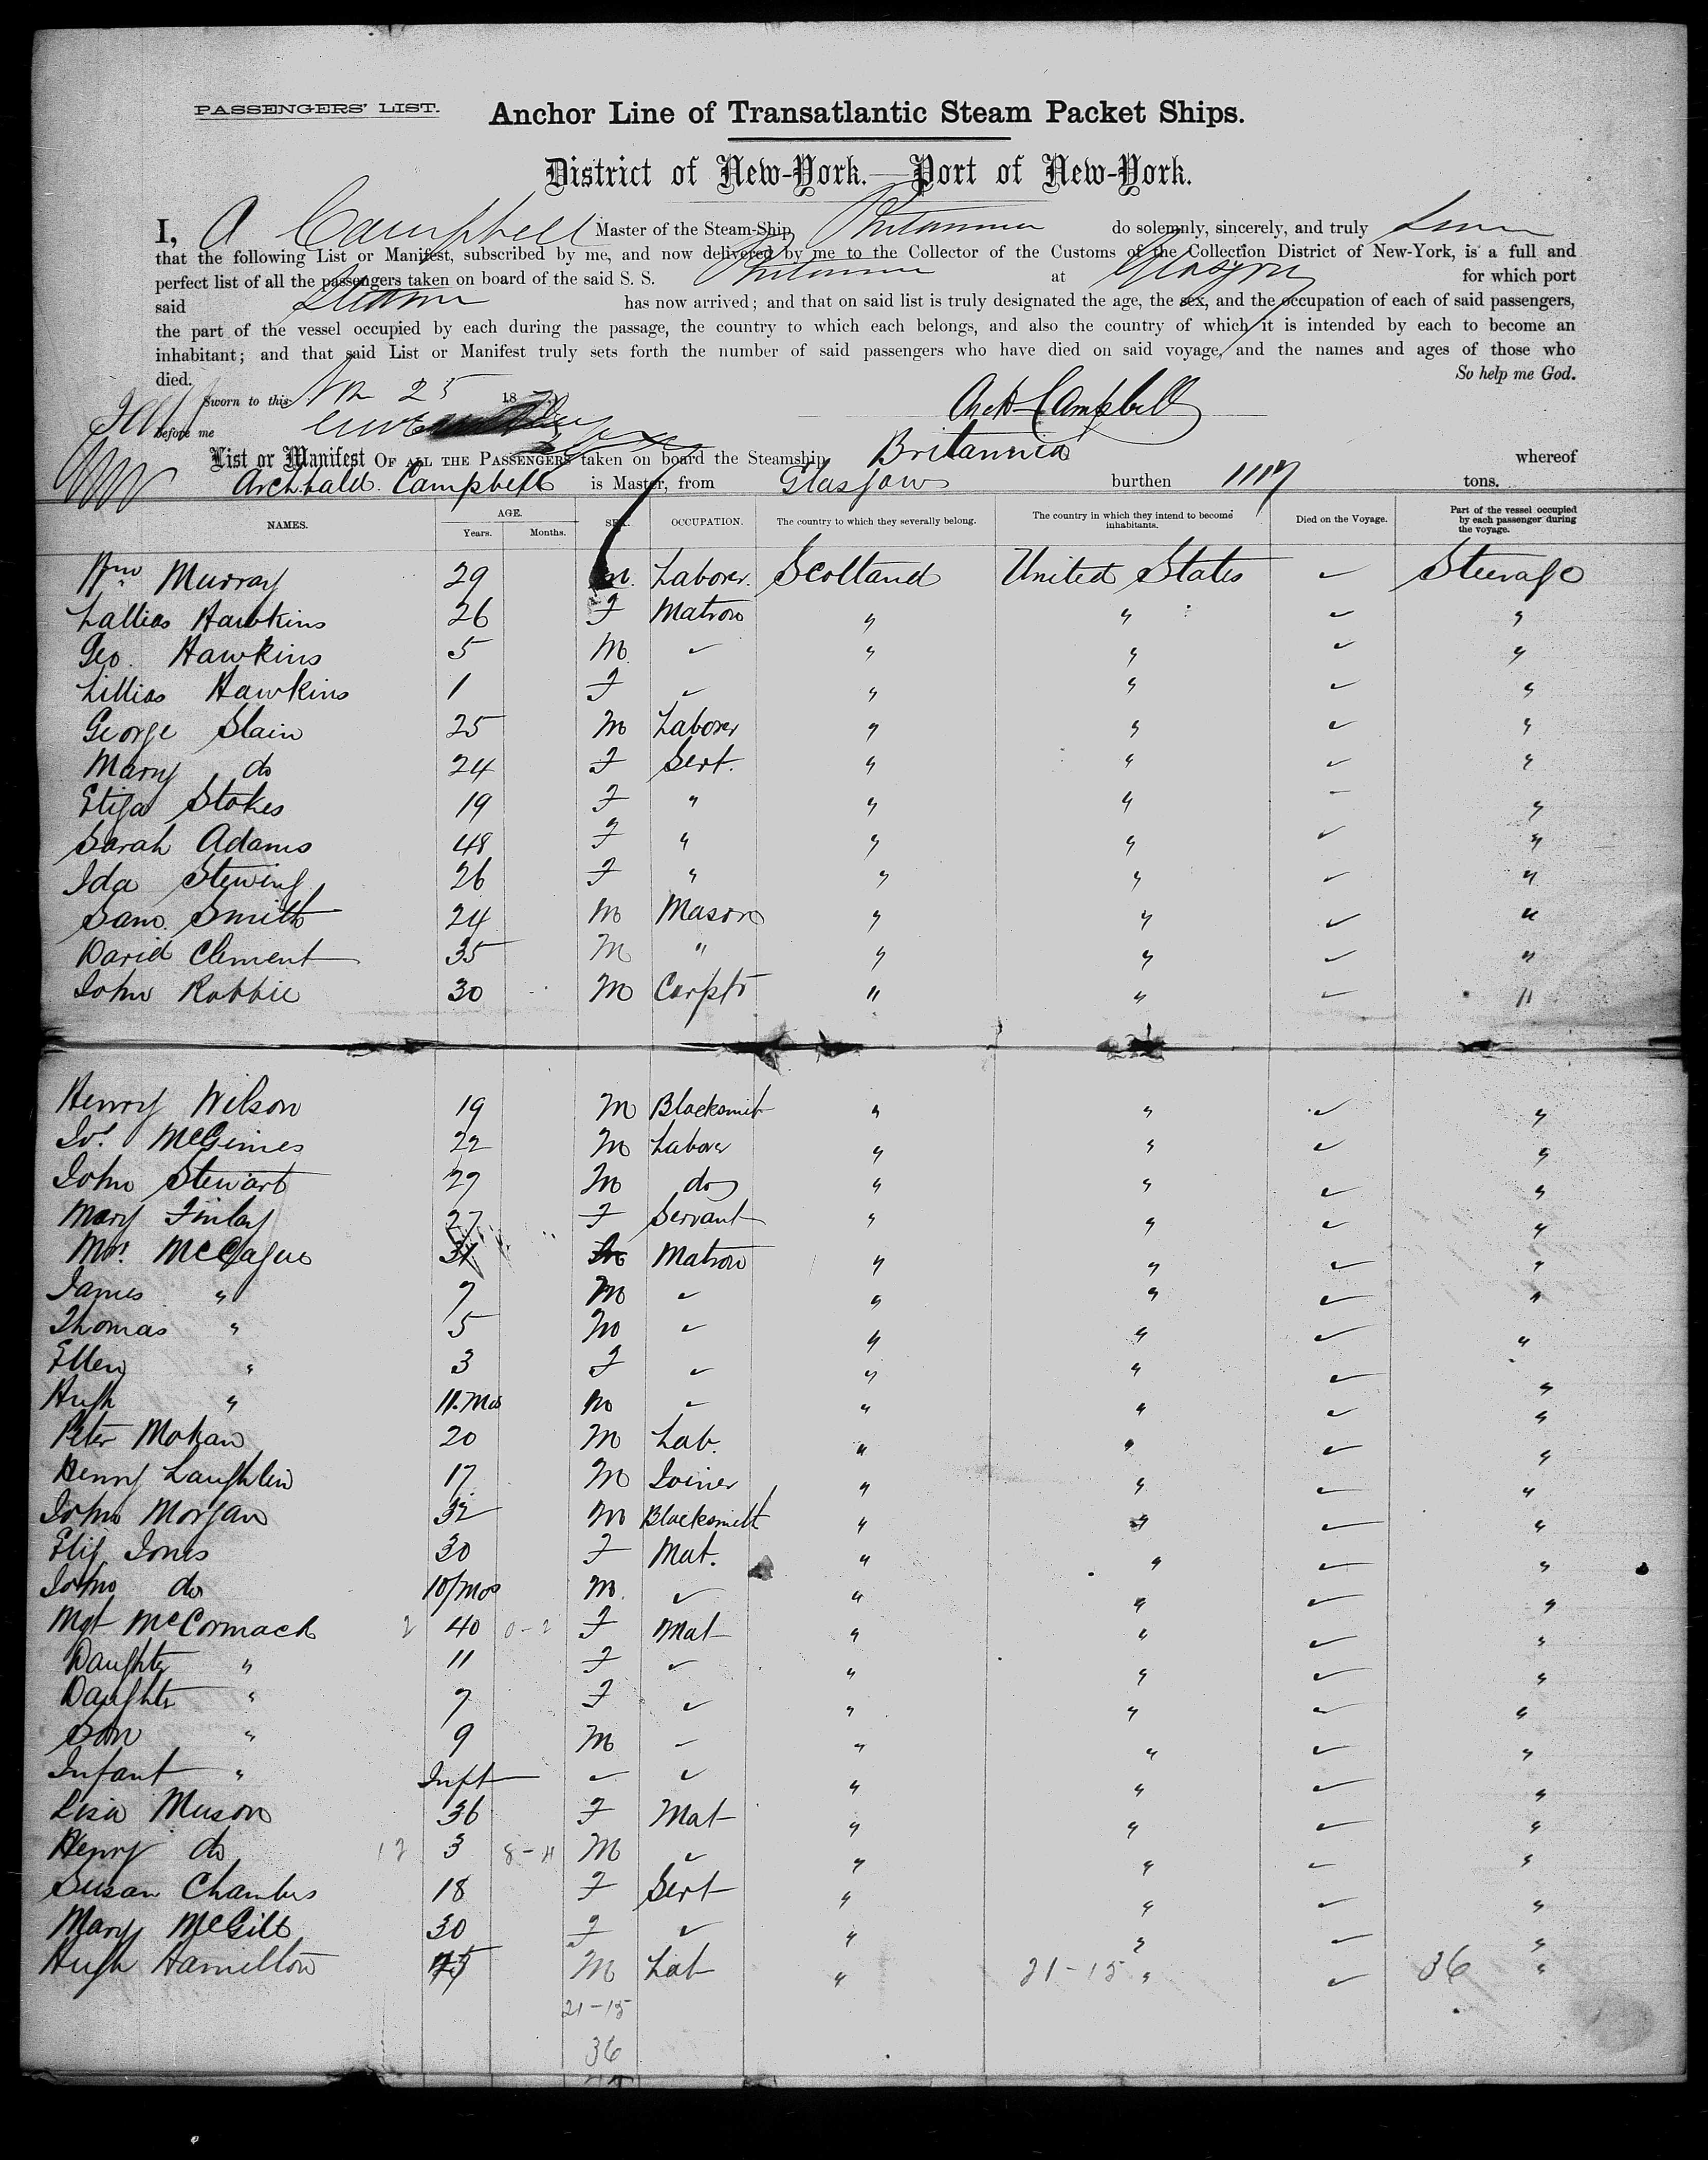 PASSENGERS' LIST. Anchor Line of Transatlantic Steam Packet Ships.
District of New-York.—Port of New-York.
I, A Campbell Master of the Steam-Ship Britannia do solemnly, sincerely, and truly
that the following List or Manifest, subscribed by me, and now delivered by me to the Collector of the Customs of the Collection District of New-York, is a full and
perfect list of all the passengers taken on board of the said S. S. Britannia at Glasgow for which port
said Steamer has now arrived; and that on said list is truly designated the age, the sex, and the occupation of each of said passengers,
the part of the vessel occupied by each during the passage, the country to which each belongs, and also the country of which it is intended by each to become an
inhabitant; and that said List or Manifest truly sets forth the number of said passengers who have died on said voyage, and the names and ages of those who
died. So help me God.
Sworn to this Nov 25 18
Before me Archd Campbell
List or Manifest OF ALL THE PASSENGERS taken on board the Steamship Britannia whereof
Archbald. Campbell is Master, from Glasgow burthen tons.
NAMES. AGE. Years. Months. SEX. OCCUPATION. The country to which they severally belong. The country in which they intend to become inhabitants. Died on the Voyage. Part of the vessel occupied by each passenger during the voyage.
Wm Murray 29 M. Laborer. Scotland United States ✓ Steerage
Lallias Hawkins 26 F Matron " " ✓ "
Geo. Hawkins 5 M. ✓ " " ✓ "
Lillias Hawkins 1 F ✓ " " ✓ "
George Slain 25 M Laborer " " ✓ "
Mary do 24 F Sert. " " ✓ "
Eliza Stokes 19 F " " " - "
Sarah Adams 48 F " " " ✓ "
Ida Stewing 26 F " " " ✓ "
Sam. Smith 24 M Mason " " ✓ "
David Clement 35 M " " " ✓ "
John Robbie 30 M Carptr " " ✓ "
Henry Wilson 19 M Blacksmit " " ✓ "
Jos. McGinnes 22 M Laborer " " ✓ "
John Stewart 27 M do " " ✓ "
Mary Finlay 27 F Servant " " ✓ "
Mrs. McCague 31 Matron " " ✓ "
James " 7 M ✓ " " ✓ "
Thomas " 5 M ✓ " " ✓ "
Ellen " 3 F ✓ " " ✓ "
Hugh " 11.Mos M ✓ " " ✓ "
Peter Mohan 20 M Lab. " " ✓ "
Henry Laughlin 17 M Joiner " " ✓ "
John Morgan 32 M Blacksmith " " ✓ "
Eliz Jones 30 F Mat. " " ✓ "
John do 10/Mos M. ✓ " " ✓ "
Mgt McCormack 2 40 0-2 F Mat " " ✓ "
Daughter " 11 F ✓ " " ✓ "
Daughter " 7 F ✓ " " ✓ "
Son " 9 M ✓ " " ✓ "
Infant " Inft ✓ ✓ " " ✓ "
Lisa Muson 36 F Mat " " ✓ "
Henry do 12 3 8-4 M ✓ " " ✓ "
Susan Chambers 18 F Sert " " ✓ "
Mary McGill 30 F ✓ " " ✓ "
Hugh Hamilton M Lab " 21-15 " ✓ 36 "
21-15
36